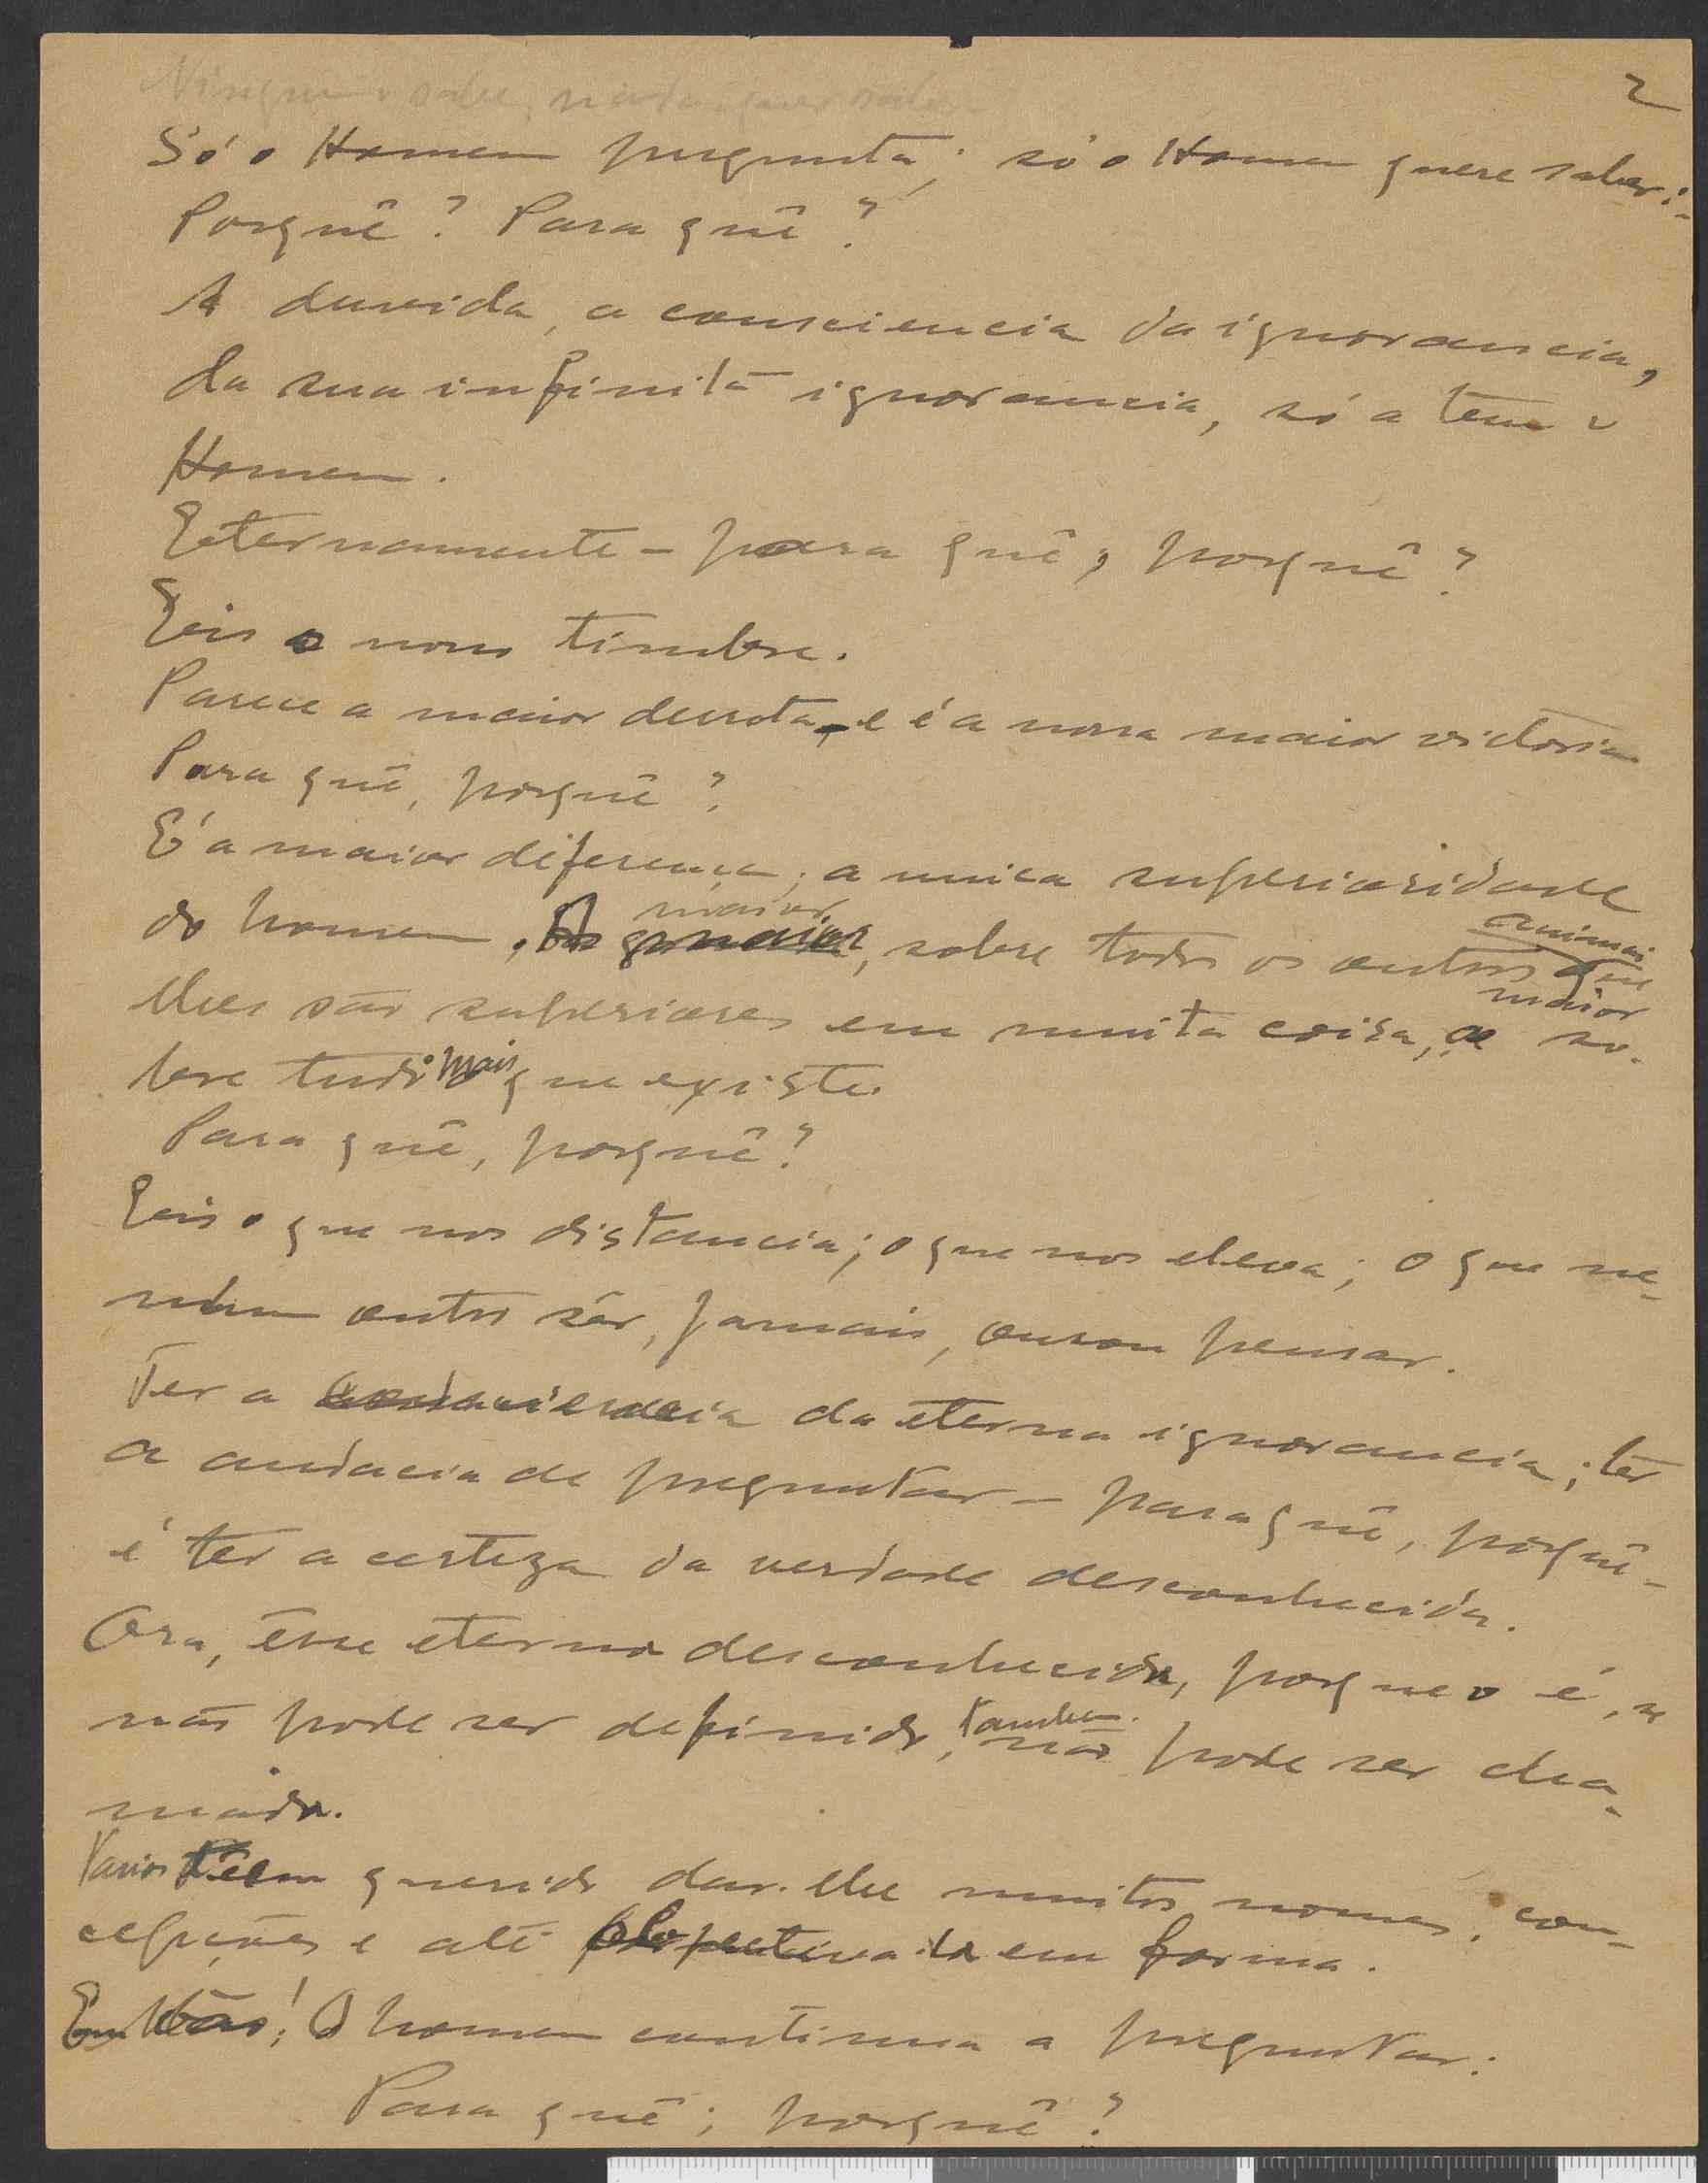 2
Ninguem sabe, nada, quer saber
Só o Homem pregunta; só o Homem quere saber:-
Porquê? Para quê?
A duvida, a consciencia da ignorancia,
da sua infinita ignorancia, só a tem o
Homem.
Eternamente - para quê, porquê?
Eis o nosso timbre.
Parece a maior derrota, e é a nossa maior victoria
Para quê, porquê?
E' a maior diferença; a unica superioridade
do homem, maior, sobre todos os outros animais que
lhes são superiores em muita coisa, e maior so-
bre tudo o mais que existe.
Para quê, porquê?
Eis o que nos distancia; o que nos eleva; o que ne-
nhum outro sêr, jamais, ousou pensar.
Ter a consciencia da eterna ignorancia; ter
a audacia de preguntar - para quê, porquê -
é ter a certeza da verdade desconhecida.
Ora, êsse eterno desconhecido, porque o é, se
não pode ser definido, tambem não pode ser cha-
mado.
Varios têem querido dar-lhe muitos nomes, con-
cepções e até em forma.
Em vão! O homem continua a preguntar:
Para quê; porquê?